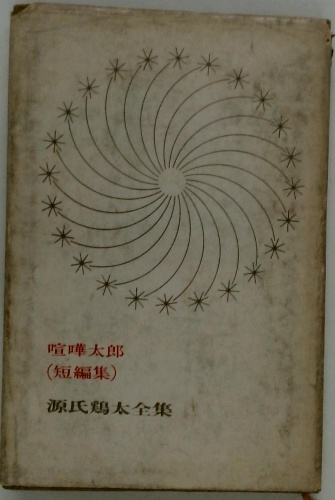 喧嘩太郎
(短編集)
源氏鶏太全集